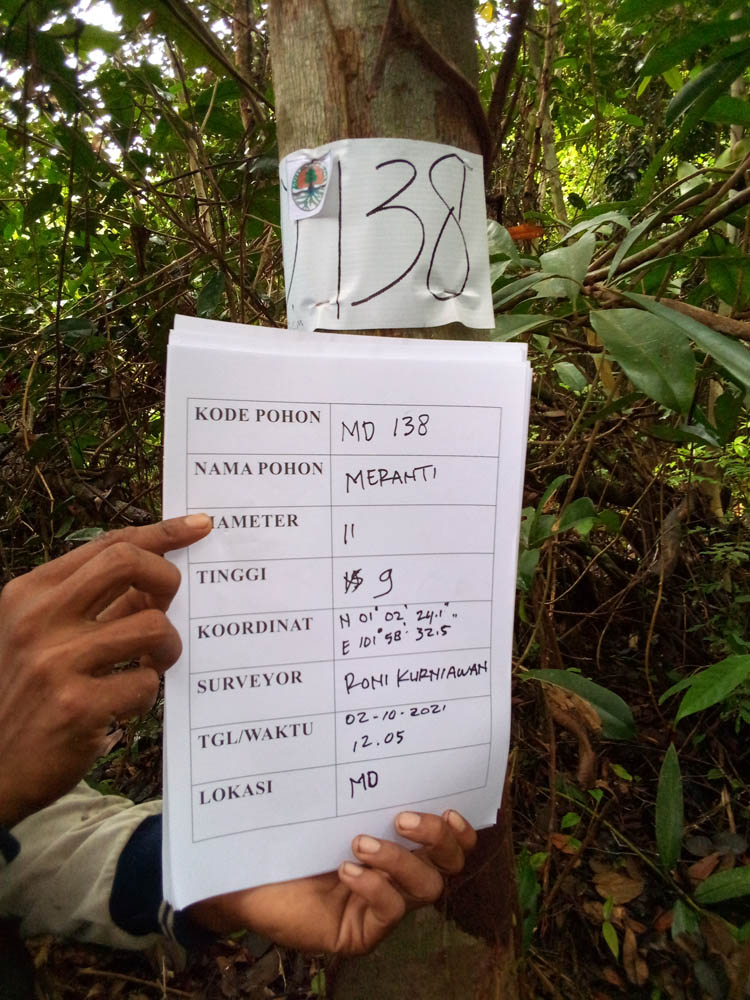 138
KODE POHON MD 138
NAMA POHON MERANTI
IAMETER 11
TINGGI 9
KOORDINAT N 01° 02' 24.1"
E 101° 58' 32.5
SURVEYOR RONI KURNIAWAN
TGL/WAKTU 02-10-2021
12.05
LOKASI MD